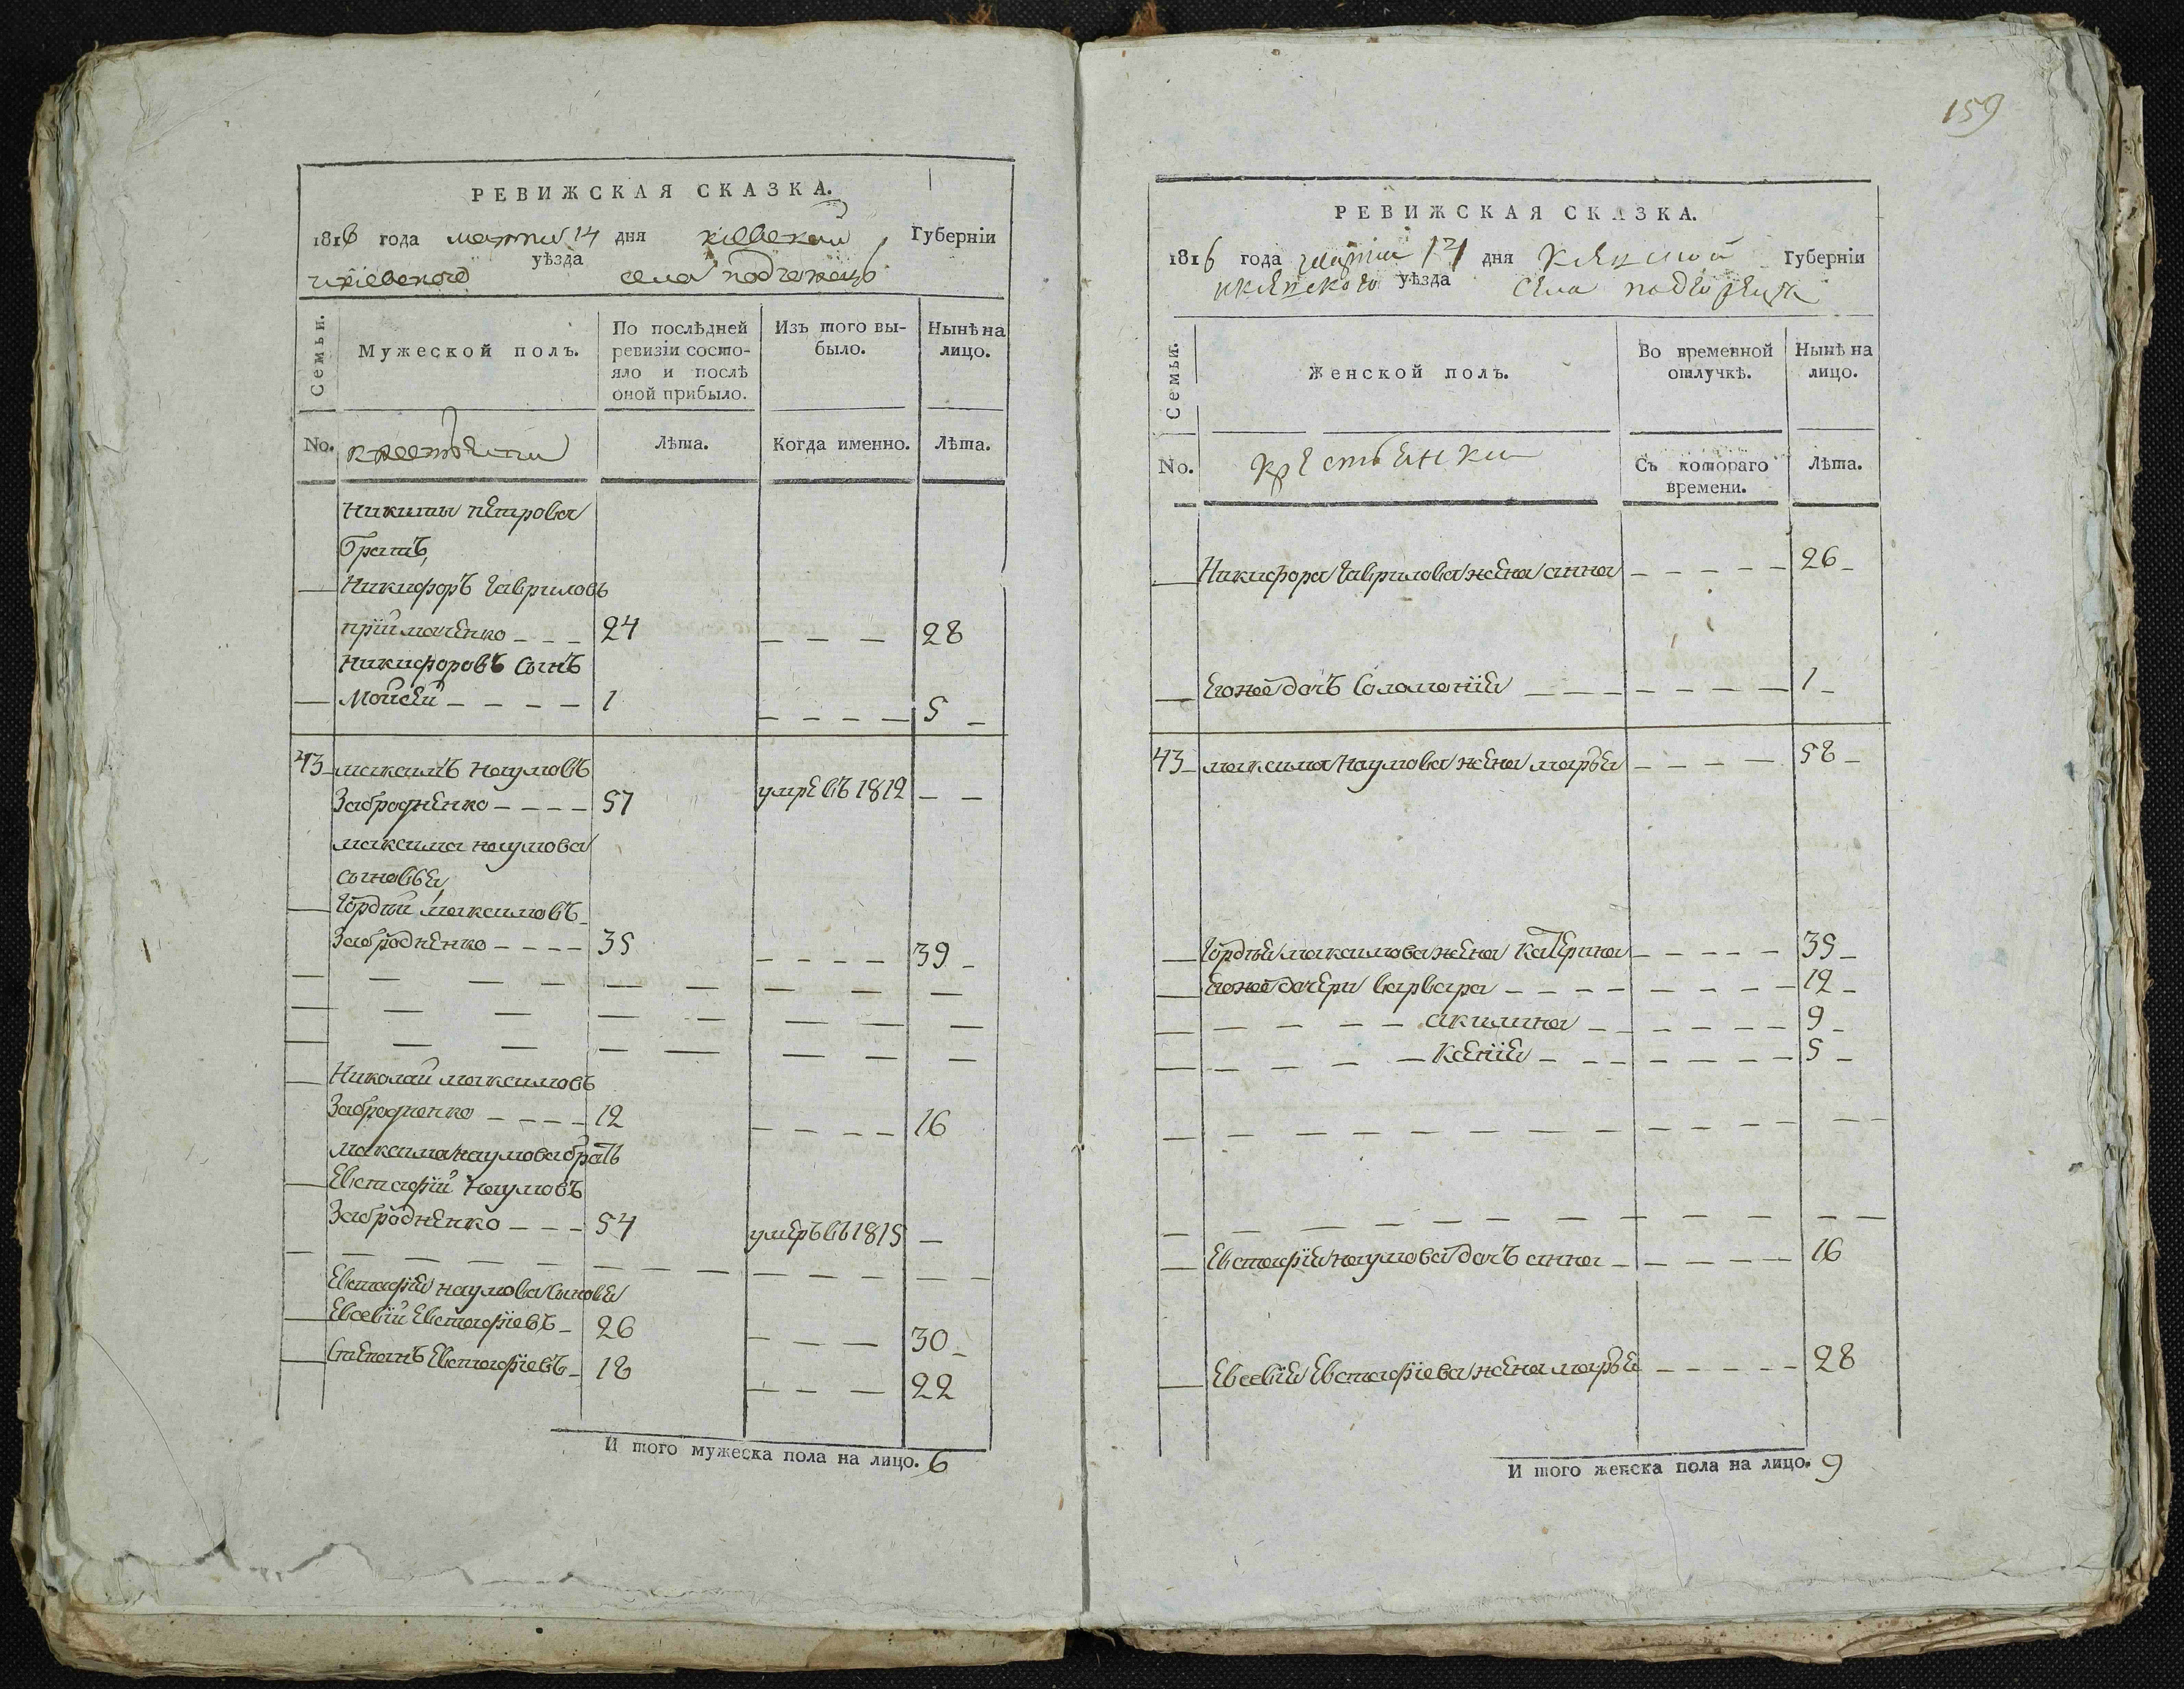 РЕВИЖСКАЯ СКАЗКА.
1816 года марта 14 дня киевской Губерніи
икиевского уѣзда села подгорець
Семьи.
Мужеской полъ.
По послѣдней ревизіи состояло и послѣ оной прибыло.
Изъ того выбыло.
Нынѣ на лицо.
No. крестьяни
Лѣта.
Когда именно.
Лѣта.
Никиты петрова
братъ,
— Никифоръ гавриловъ
приймаченко - - - 24 — — — 28
Никифоровъ сынъ
— Мойсей - - - - 1 - - - - 5 -
43 максимъ наумовъ
Забродненко - - - - 57 умревъ 1812 — —
максима наумова
сыновья
— гордий максимовъ
Забродненко - - - - 35 - - - - 39 -
— — — — — — — — —
— — — — — — — — —
— — — — — — — — —
— Николай максимовъ
Забродненко - - - - 12 - - - - 16
максима наумова братъ
— Евстафій наумовъ
Забродненко - - - 54 умеръ въ 1815 —
— — — — — — — — — — — —
Евстафія наумова сыновья
— Евсевій Евстафіевъ - 26 — — — 30 -
— степанъ Евстафіевъ - 18 — — — 22
И того мужеска пола на лицо. 6
159
РЕВИЖСКАЯ СКАЗКА.
1816 года марта 14 дня киевской Губерніи
икиевского уѣзда села подгорецъ
Семьи.
Женской полъ.
Во временной отлучкѣ.
Нынѣ на лицо.
No. крестьянки
Съ котораго времени.
Лѣта.
— Никифора гаврилова жена анна - - - - - 26 -
— Егожей дочъ Соломонія - - - - - - - - 1 -
43 - максима наумова жена марья - - - - 58 -
— гордия максимова жена катерина - - - - - 35 -
— Егожей дочери варвара - - - - - - - - 12 -
— — — — — акилина - - - - - - - 9 -
— — — — — ксенія - - - - - - - - 5 -
— — — — — — — — — — — —
— — — — — — — — — — — —
— Евстафія наумова дочъ анна - - - - - - 16
— Евсевія Евстафіева жена марья - - - - - 28
И того женска пола на лицо. 9